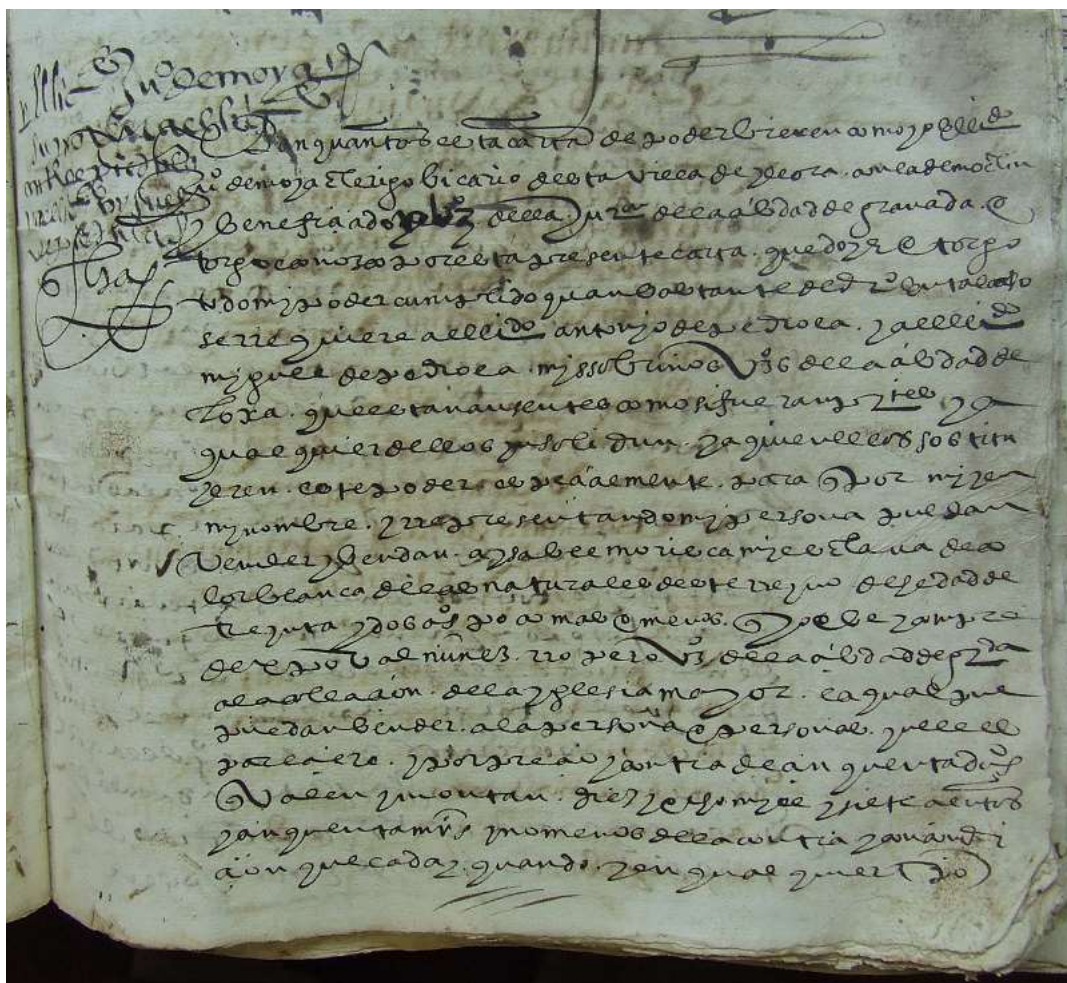 El liçdo Juº de moya
Sepan quantos esta carta de poder vieren como yo el liçdo
juº de moya clerigo bicario desta villa de yllora
y benefiçiado della juron de la çibdad de granada o
torgo e conozco por esta presente carta que doy e otorgo
todo mi poder cunplido quan bastante de drº en tal caso
se rrequiere al liçdo antonio de pedrola y al liçdo
miguel de pedrola mis sobrinos vºs de la çibdad de
loxa questan ausentes como si fueran presentes y a
qualquier dellos ynsolidun y a quien ellos sostitu
yeren este poder espeçialmente para que por mi y en
mi nombre y rrepresentando mi persona puedan
vender y bendan a ysabel morisca mi esclava de co
lor blanca de las naturales deste rreyno de hedad de
treynta y dos aºs poco mas o menos que yo obe y conpre
de xpoval nuñez rropero vº de la çibdad de grda
a la colaçion de la yglesia mayor la qual pue
puedan bender a la persona o personas que les
paresçiere y por preçio y contia de çinquenta dºs
que valen y montan diez y ocho mill y siete çientos
y çinquenta mrs y no menos de la contia y con condi
çion que cada y quando y en qualquier tpo